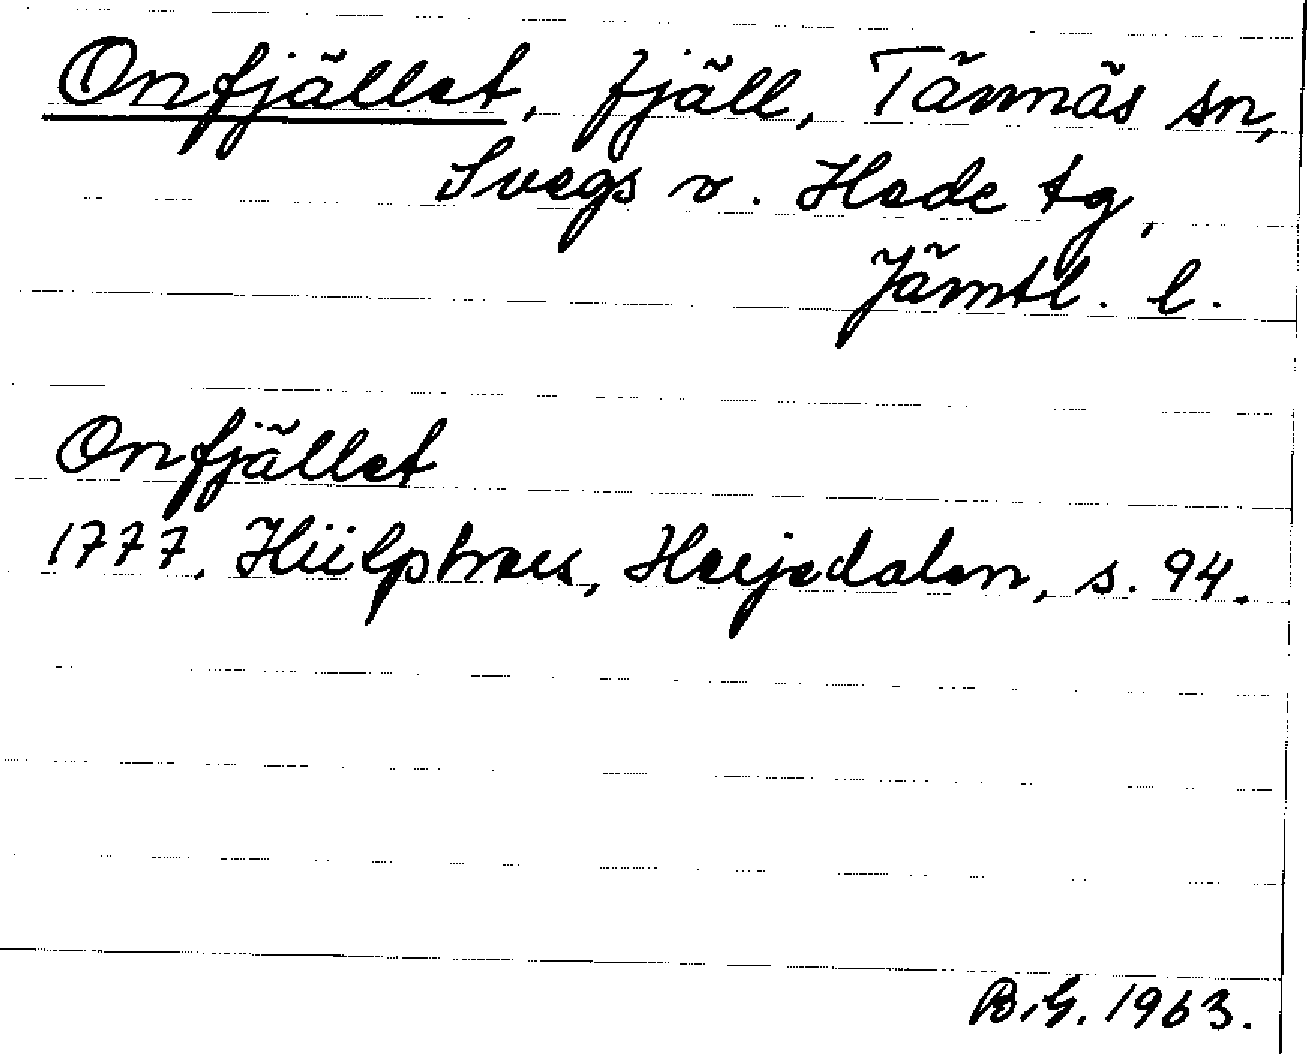 Onfjället, fjäll, Tännäs sn,
Svegs o. Hede tg,
Jämtl. l.
Onfjället
1777, Hülphers, Herjedalen, s. 94.
B.G. 1963.